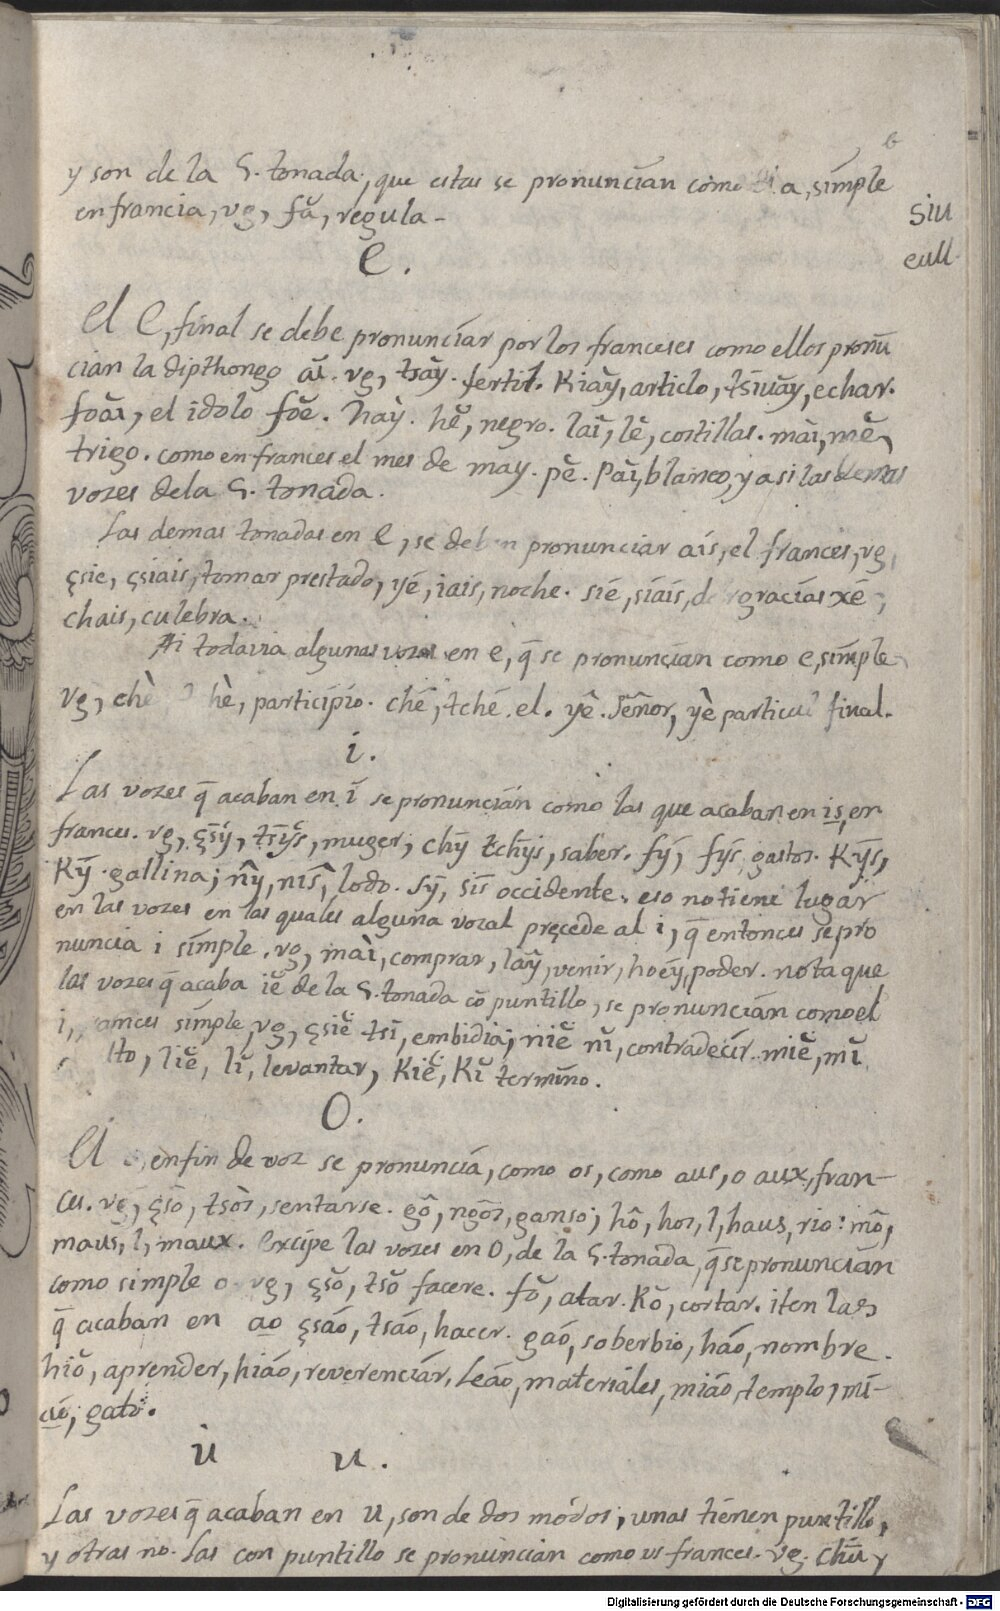 6
y son de la 5. tonada, que estas se pronuncian como a, simple
en francia, vg, fă, regula-
siu
eull.
e.
El e, final se debe pronunciar por los franceses como ellos pronū
cian la dipthongo ai. vg, tsāy. fertil. Kiāy, articlo, tsiuāy, echar.
foăi, el idolo foĕ. hāy. hĕ, negro. laĭ, lĕ, costillas. măi, mĕ,
trigo. como en frances el mes de may. pĕ. Păi, blanco, y asi las demas
vozes dela 5. tonada.
Las demas tonadas en e, se deben pronunciar ais, el frances, vg,
çsie, çsiais, tomar prestado, yé, iais, noche. sié, siáis, xē,
chais, culebra.
Ai todavia algunas vozes en e, q̄ se pronuncian como e, simple
vg, chè hè, participio. ché, tché. el. yê. Señor, yè particul final.
i.
Las vozes q̄ acaban en i se pronuncian como las que acaban en is, en
frances. vg, çsȳ, tsȳs, muger, chȳ tchys, saber. fȳ, fȳs, gastos. Kȳs,
Kȳ. gallina; nŷ, nis, lodo. Sȳ, sis occidente. eso no tiene lugar
en las vozes en las quales alguna vocal precede al i, q̄ entonces se pro
nuncia i simple. vg, mài, comprar, laŷ, venir, hoéy, poder. nota que
las vozes q̄ acaba iĕ de la 5. tonada cō puntillo, se pronuncian como el
i, simple, vg, çsiĕ tsĭ, embidia; niĕ nĭ, contradecir. miĕ, mĭ
lto, liĕ, lĭ, levantar, Kiĕ, Kĭ termino.
O.
El en fin de voz se pronuncia, como os, como aus, o aux, fran-
ces. vg, çsò, tsòs, sentarse. gô, ngôs, ganso; hô, hos, l, haus, rio: mô,
maus, l, maux. Excipe las vozes en o, de la 5. tonada, q̄ se pronuncian
como simple o. vg, çsŏ, tsŏ facere. fŏ, atar. Kŏ, cortar. iten las
q̄ acaban en ao çsáo, tsáo, hacer. gaó, soberbio, háo, nombre.
hiŏ, aprender, hiáo, reverenciar, Leáo, materiales, miáo, templo, mi-
aó, gato.
ù u.
Las vozes q̄ acaban en u, son de dos módos, unas tienen puntillo,
y otras no. Las con puntillo se pronuncian como us frances. vg. chū,
Digitalisierung gefördert durch die Deutsche Forschungsgemeinschaft - DFG